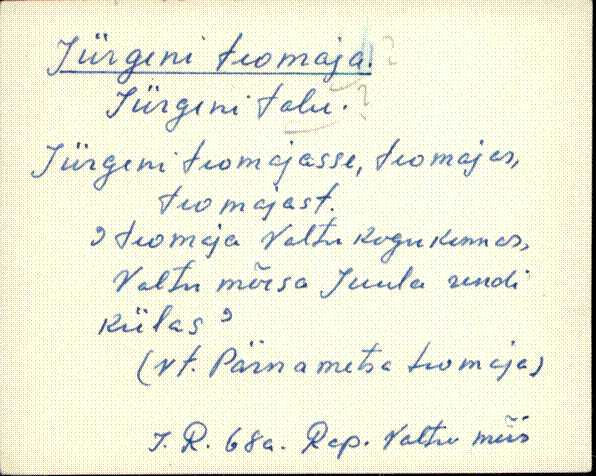 Jürgeni teomaja. ?
Jürgeni talu. ?
Jürgeni teomajasse, teomajas,
teomajast.
, teomaja Valtu kogukonnas,
Valtu mõisa Juula rendi
külas ,
(vt. Pärnametsa teomaja)
J. R. 68a. Rap. Valtu mõis